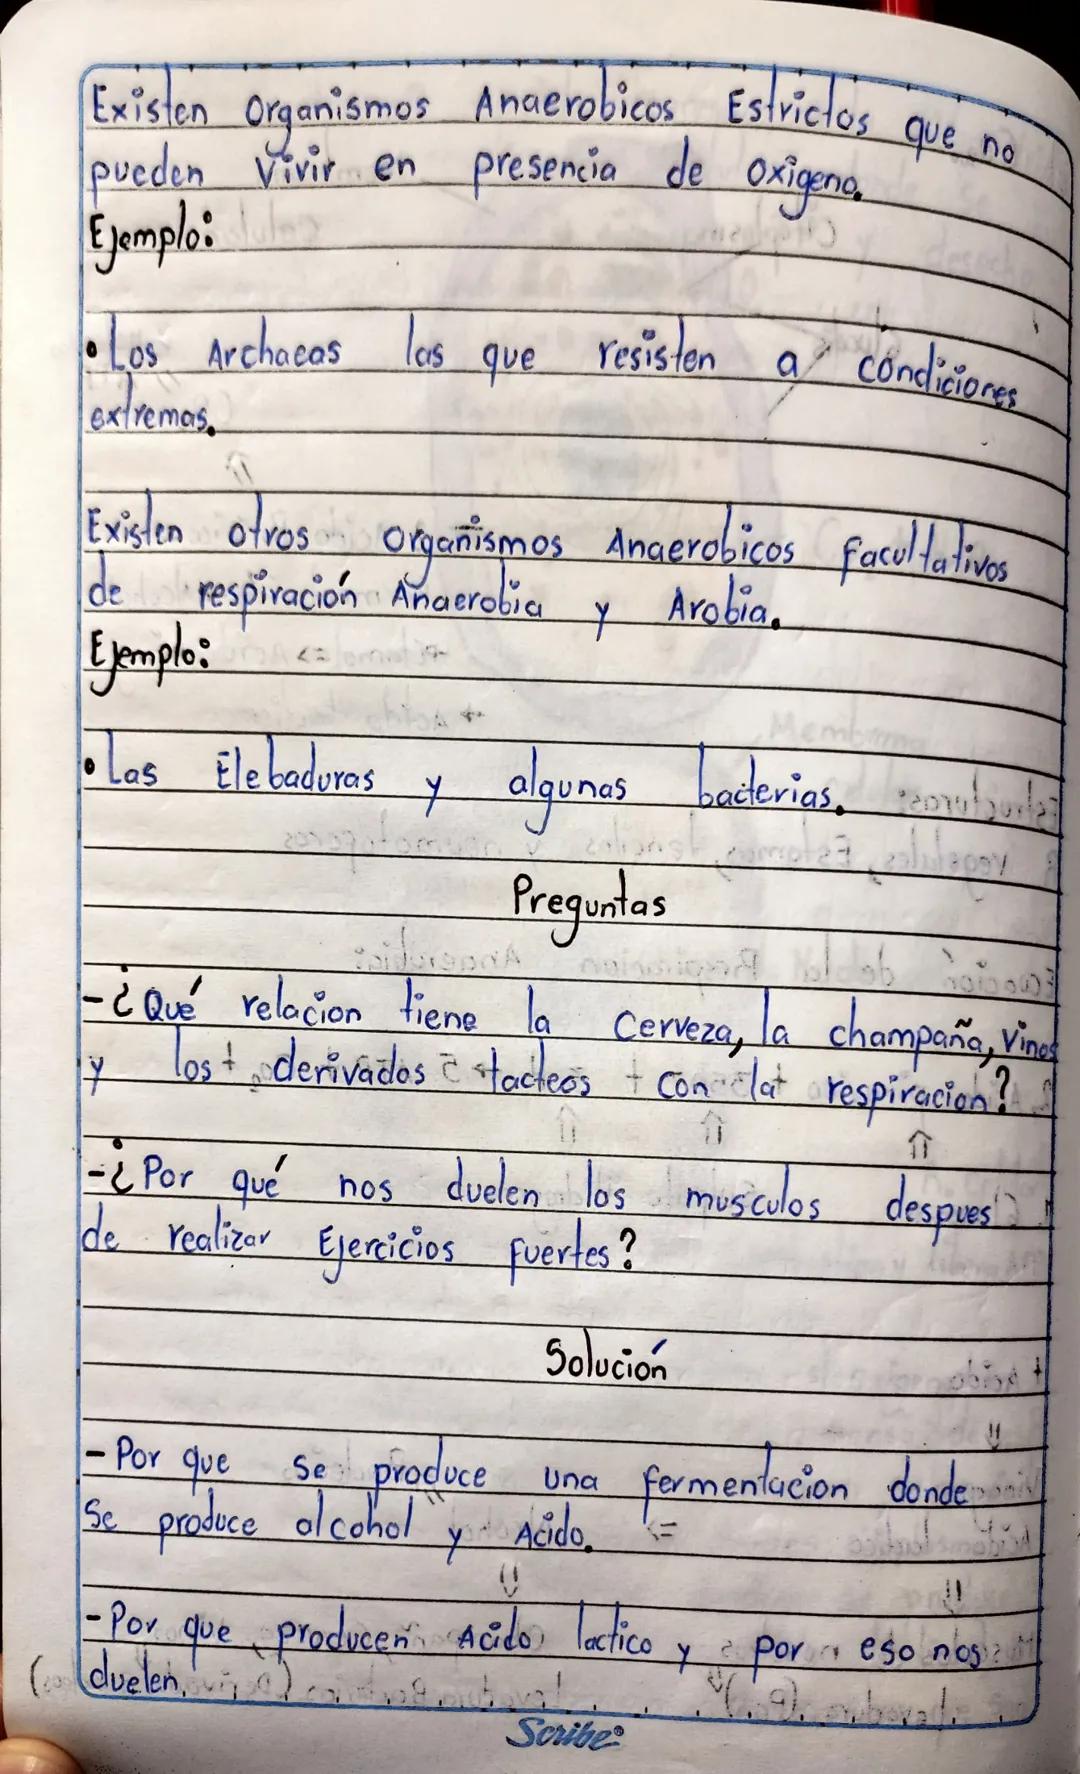 Existen Organismos Anaerobicos Estrictos que no
pueden Vivir en presencia de oxigeno.
Ejemplo:
• Los Archaeas las que resisten a condiciones
extremas.
Existen otros organismos Anaerobicos facultativos
de respiración Anaerobia y Arobia.
Ejemplo:
• Las Elebaduras y algunas bacterias.
Preguntas
- ¿Qué relacion tiene la cerveza, la champaña, vinos
y los derivados lacteos con la respiracion?
- ¿Por qué nos duelen los musculos despues
de realizar Ejercicios fuertes?
Solución
- Por que se produce una fermentacion donde
se produce alcohol y Acido.
- Por que producen Acido lactico y por eso nos
duelen.
Scribe®